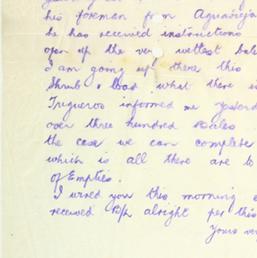 his foreman from Aguavieja
he has received instructions
open up the very wettest bales
I am going up there this
Shrub & load what there
Trigueros informed me yesterd
over three hundred Bales
the case we can complete
which is all there are to
of Empties.
I wired you this morning
received P/h alright per this
Yours ver